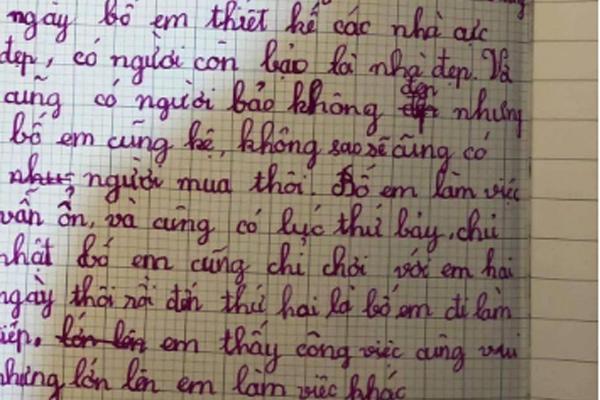 ngày bố em thiết kế các nhà cực
đẹp, có người còn bảo là nhà đẹp. Và
cũng có người bảo không đẹp nhưng
bố em cũng kệ, không sao sẽ cũng có
người mua thôi. Bố em làm việc
vẫn ổn, và cũng có lực thứ bảy, chủ
nhật bố em cũng chỉ chơi với em hai
ngày thôi rồi đến thứ hai là bố em đi làm
tiếp. lớn lên em thấy công việc cũng vui
nhưng lớn lên em làm việc khác